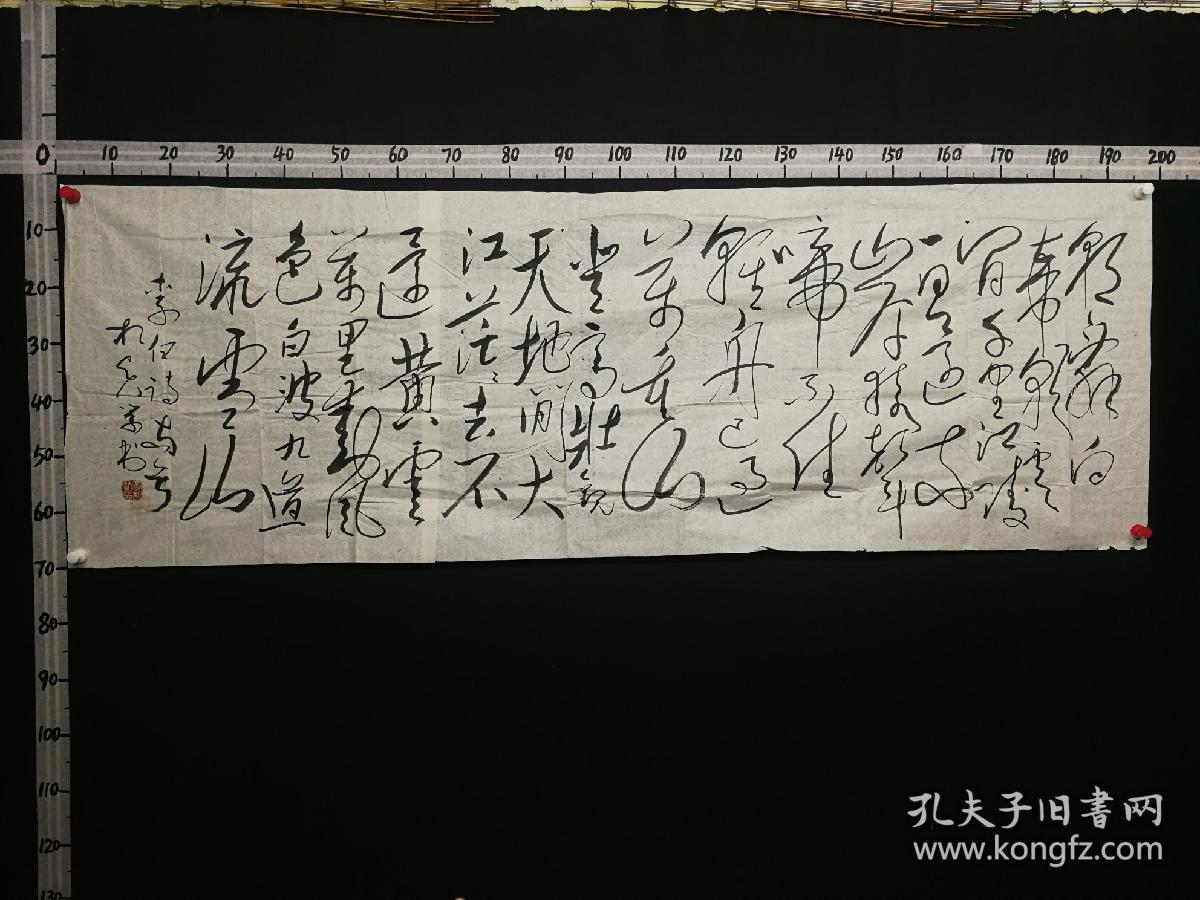 0 10 20 30 40 50 60 70 80 90 100 110 120 130 140 150 160 170 180 190 200
朝辭白
帝彩雲
間千里江陵
一日還兩
岸猿聲
啼不住
輕舟已過
萬重山
登高壯觀
天地間大
江茫茫去不
還黃雲
萬里動風
色白波九道
流雪山
李白詩兩首
書
10
20
30
40
50
60
70
80
90
100
110
120
130
孔夫子旧書网
www.kongfz.com